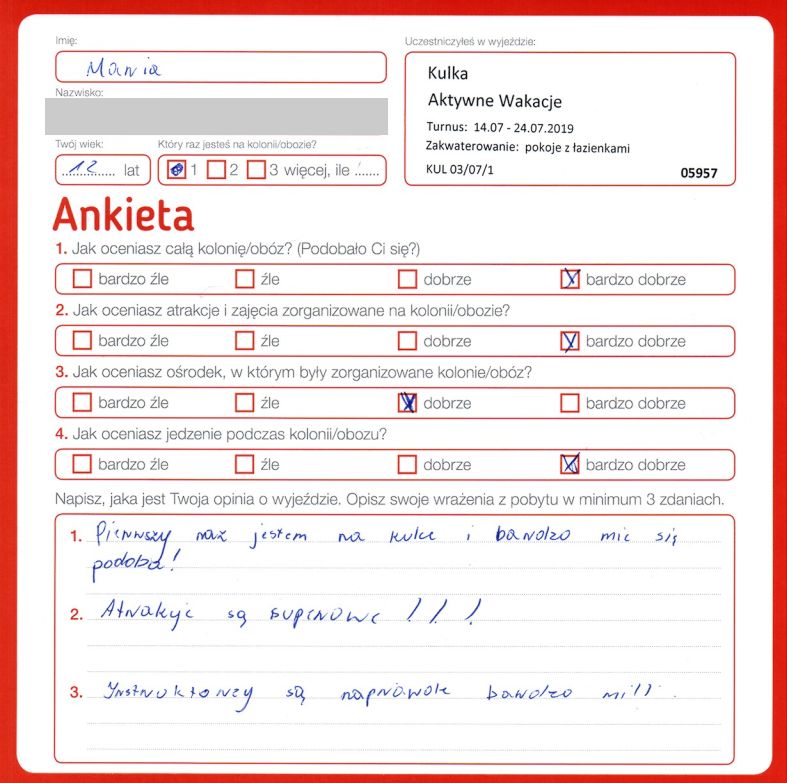 Imię:
Uczestniczyłeś w wyjeździe:
Maria
Kulka
Aktywne Wakacje
Nazwisko:
Turnus: 14.07 - 24.07.2019
Zakwaterowanie: pokoje z łazienkami
KUL 03/07/1
05957
Twój wiek:
Który raz jesteś na kolonii/obozie?
12 lat
1 2 3 więcej, ile
Ankieta
1. Jak oceniasz całą kolonię/obóz? (Podobało Ci się?)
bardzo źle źle dobrze bardzo dobrze
2. Jak oceniasz atrakcje i zajęcia zorganizowane na kolonii/obozie?
bardzo źle źle dobrze bardzo dobrze
3. Jak oceniasz ośrodek, w którym były zorganizowane kolonie/obóz?
bardzo źle źle dobrze bardzo dobrze
4. Jak oceniasz jedzenie podczas kolonii/obozu?
bardzo źle źle dobrze bardzo dobrze
Napisz, jaka jest Twoja opinia o wyjeździe. Opisz swoje wrażenia z pobytu w minimum 3 zdaniach.
1. Pierwszy raz jestem na kulce i bardzo mie się
podoba!
2. Atrakyje są superowe!!!
3. Instruktorzy są naprawde bardzo mili.